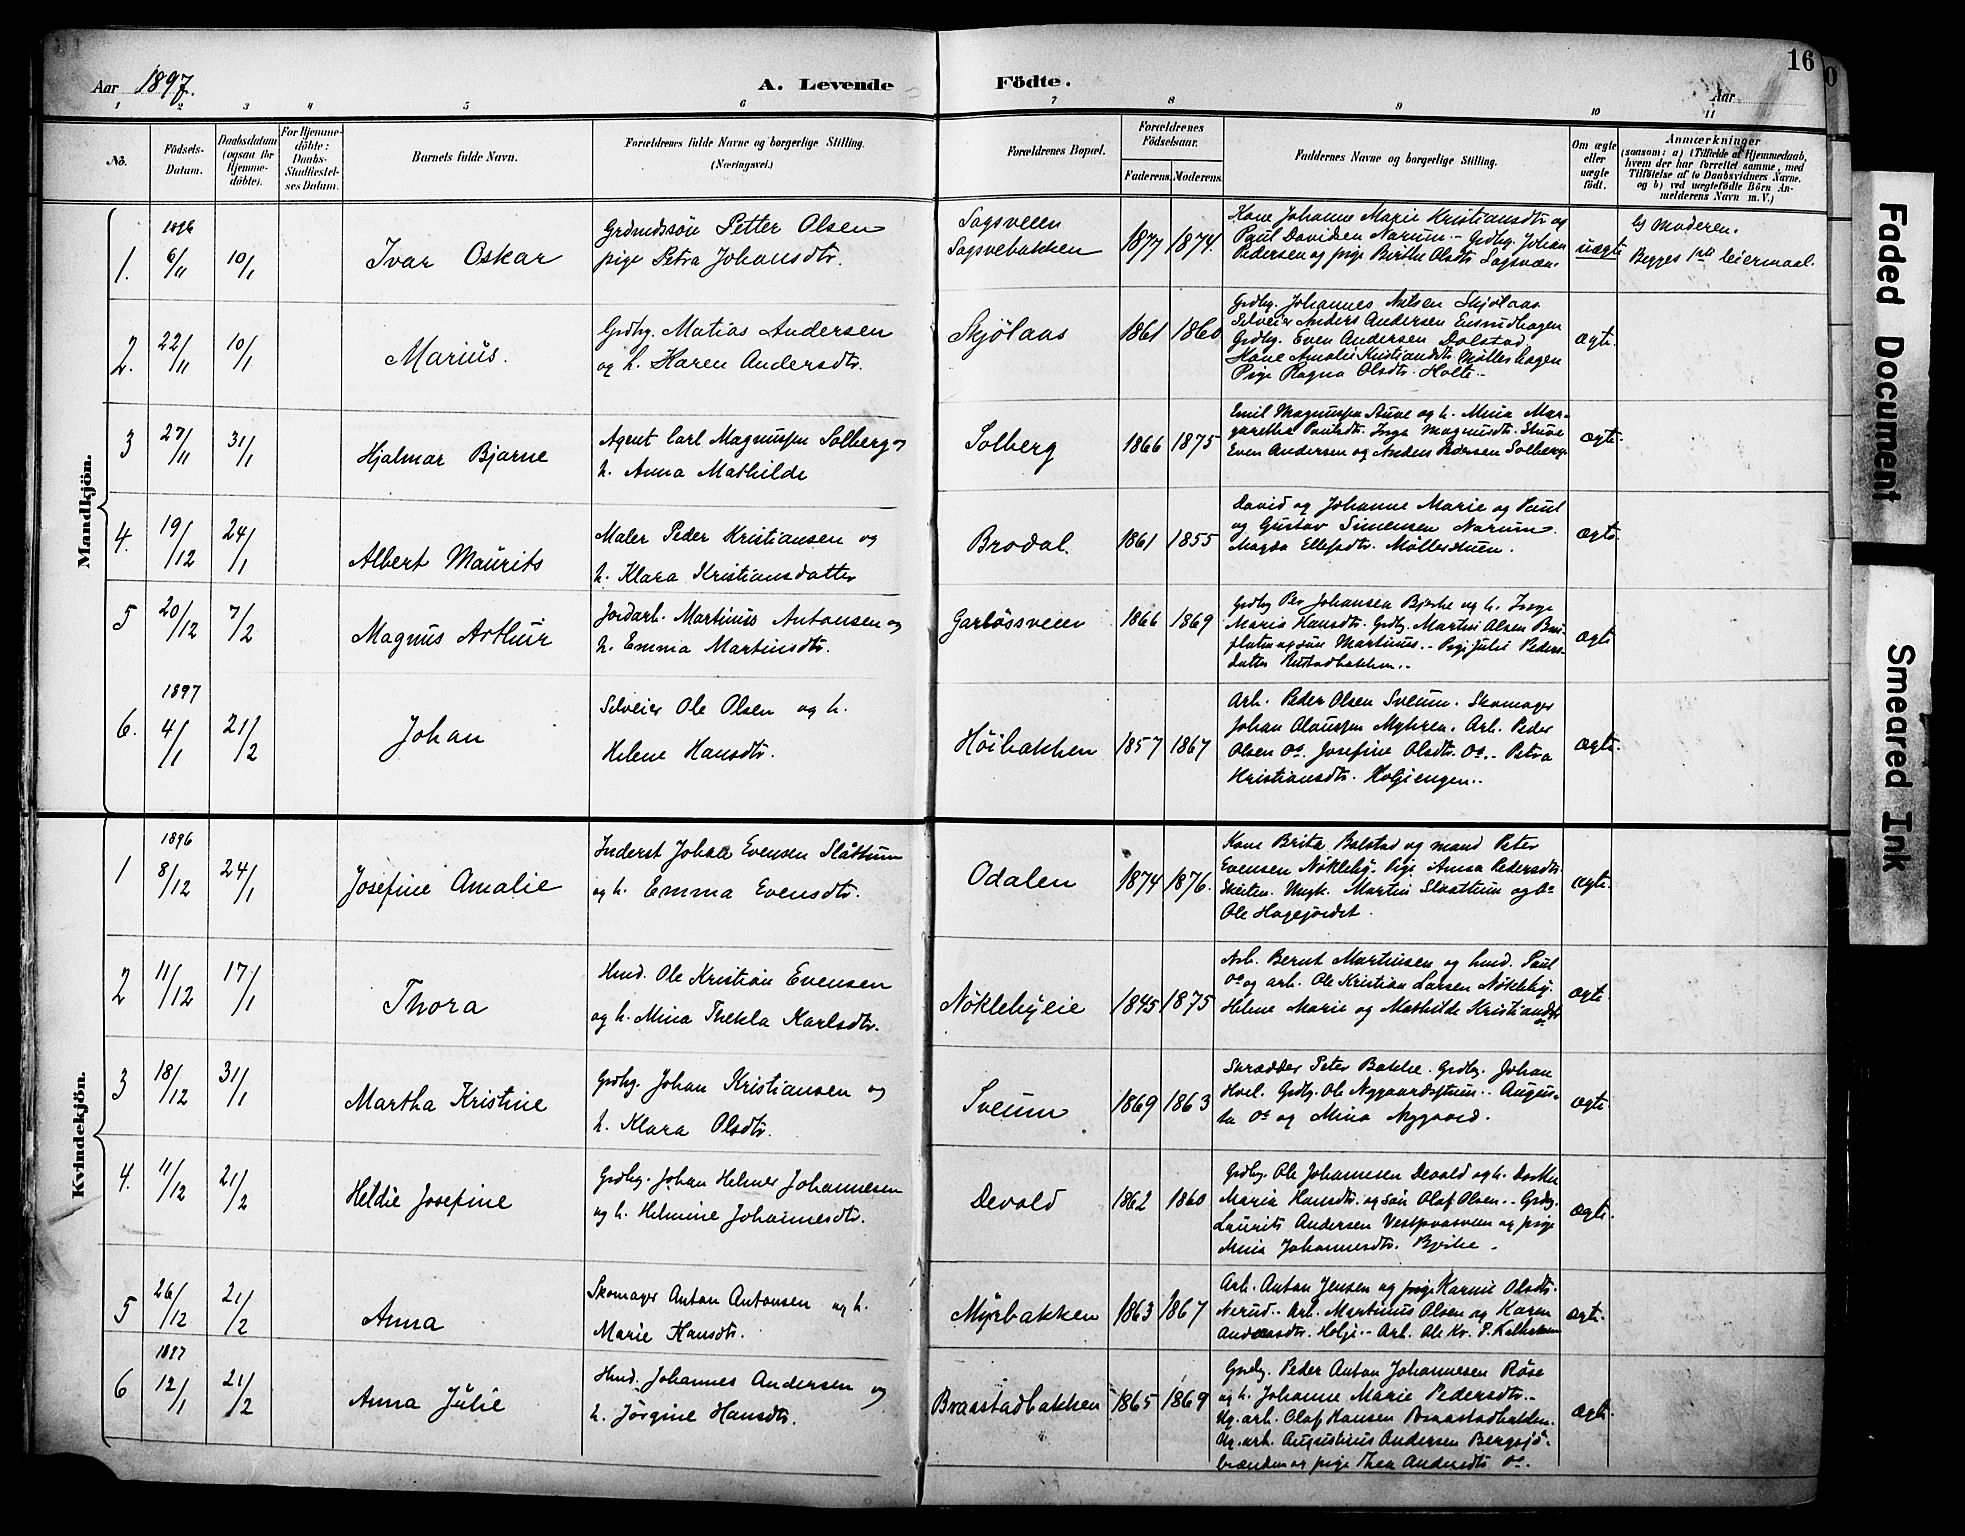 Aar 1897.
A. Levende Födte.
16
Aar
1 2 3 4 5 6 7 8 9 10 11
No.
Födsels-Datum.
Daabsdatum (ogsaa for Hjemme-döbte).
For Hjemme-döbte: Daabs-Stadfæstel-ses Datum.
Barnets fulde Navn.
Forældrenes fulde Navne og borgerlige Stilling. (Næringsvei.)
Forældrenes Bopæl.
Forældrenes Födselsaar.
Faderens. Moderens.
Faddernes Navne og borgerlige Stilling.
Om ægte eller uægte födt.
Anmærkninger
(saasom: a) i Tilfælde af Hjemmedaab, hvem der har forrettet samme, med Tilföielse af to Daabsvidners Navne. og b) ved uægtefödte Börn An-melderens Navn m. V.)
Mandkjön.
1896
1. 6/11 10/1 Ivar Oskar
Grdmdssön Petter Olsen
pige Petra Johansdtr.
Sagsveien
Sagsvebakken
1877 1874.
Kone Johanne Marie Kristiansdtr og
Paul Davidsen Narum - Grdbg. Johan
Pedersen og pige Birthe Olsdtr Sagsveen.
uægte
Moderen.
Begges 1ste leiermaal.
2. 22/11 10/1 Marius.
Grdbg. Matias Andersen
og h. Karen Andersdtr.
Skjölaas
1861 1860
Grdbg. Johannes Nilsen Skjölaas
Selveier Anders Andersen Ensrudhagen
Grdbg. Even Andersen Dolstad
Kone Amalie Kristiansdtr Möllershagen
Pige Ragna Olsdtr. Holte -
ægte.
3 27/11 31/1 Hjalmar Bjarne
Agent Carl Magnussen Solberg
h. Anna Mathilde
Solberg
1866 1875
Emil Magnussen Stuve og h. Mina Mar-
garetha Paulsdtr. Inga Magnusdtr. Stuve
Even Andersen og Anders Pedersen Solberg
ægte.
4. 19/12 24/1 Albert Maurits
Maler Peder Kristiansen og
h. Klara Kristiansdatter
Brodal.
1861 1855
David og Johanne Marie og Paul
og Gustav Simensen Narum.
Magda Ellefsdtr. Möllerstuen.
ægte.
5 20/12 7/2 Magnus Arthur
Jordarb. Martinus Antonsen og
h. Emma Martinsdtr.
Garlössveien
1866 1869
Grdbg Per Johansen Bjerke og h. Inge
Marie Hansdtr. Grdbg. Martin Olsen Bru-
flaten og sön Martinus. - Pige Julie Peders-
datter Rustadbakken.
ægte
1897
6. 4/1 21/2 Johan
Selveier Ole Olsen og h.
Helene Hansdtr.
Höibakken
1857 1867
Arb. Peder Olsen Sveum. Skomager
Johan Olaussen Myhren. Arb. Peder
Olsen Do. Josefine Olsdtr. Do. - Petra
Kristiansdtr. Holjiengen.
ægte.
Kvindekjön.
1896
1 8/12 24/1 Josefine Amalie
Inderst Johan Evensen Slåttum
og h. Emma Evensdtr.
Odalen
1874 1876.
Kone Brita Bolstad og mand Peter
Evensen Nökleby. Pige Anna Pedersdtr.
Skiten. Ungk. Martin Slaattum og Do
Ole Hagejordet.
ægte.
2 11/12 17/1 Thora
Hmd. Ole Kristian Evensen
og h. Mina Thekla Karlsdtr.
Nöklebyeie
1845 1875
Arb. Bernt Martinsen og hmd. Paul
Do og arb. Ole Kristian Larsen Nökleby.
Helene Marie og Mathilde Kristiansdtr
Do
ægte.
3 18/12 31/1 Martha Kristine
Grdbg. Johan Kristiansen og
h. Klara Olsdtr.
Sveum
1869 1863
Skrædder Peter Bakke. Grdbg. Johan
Hvel. Grdbg. Ole Nygaardsstuen. - Augus-
ta Do og Mina Nygaard.
ægte.
4. 11/12 21/2 Heldie Josefine
Grdbg. Johan Helmer Johannesen
og h. Helmine Johannesdtr.
Devold
1862 1860
Grdbg. Ole Johannesen Devold og h. Dorthe
Maria Hansdtr. og sön Olaf Olsen. - Grdbg.
Laurits Andersen Vestpaasveen og pige
Mina Johannesdtr. Bjerke.
ægte.
5 26/12 21/2 Anna
Skomager Anton Antonsen og h.
Marie Hansdtr.
Myrbakken
1863 1867
Arb. Anton Jensen og pige Karnie Olsdtr.
Nerud. - Arb. Martinus Olsen og Karen
Andersdtr. Holje. - Arb. Ole Kr. P. Kalbakken
ægte.
1897
6 12/1 21/2 Anna Julie
Hmd. Johannes Andersen og
h. Jörgine Hansdtr.
Braastadbakken
1865 1869
Grdbg. Peder Anton Johannesen Röse
og h. Johanne Marie Pedersdtr. -
Ug. arb. Olaf Hansen Braastadbakken.
Ug. arb. Augustinus Andersen Bergsjö-
brænden og pige Thea Andersdtr Do.
ægte.
Faded Document
Smeared Ink